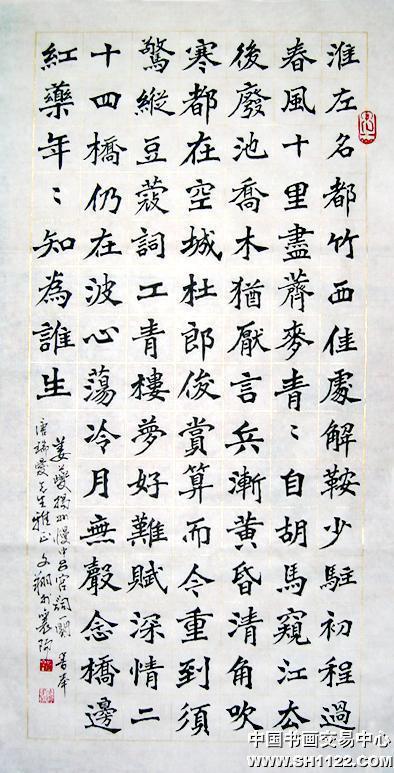 淮左名都竹西佳處解鞍少駐初程過
春風十里盡薺麥青〻自胡馬窺江去
後廢池喬木猶厭言兵漸黃昏清角吹
寒都在空城杜郎俊賞算而今重到須
驚縱豆蔻詞工青樓夢好難賦深情二
十四橋仍在波心蕩冷月無聲念橋邊
紅藥年〻知為誰生
姜夔揚州慢中呂宮詞 書奉
唐瑞先生雅正 文翔於襄阳
中国书画交易中心
WWW.SH1122.COM